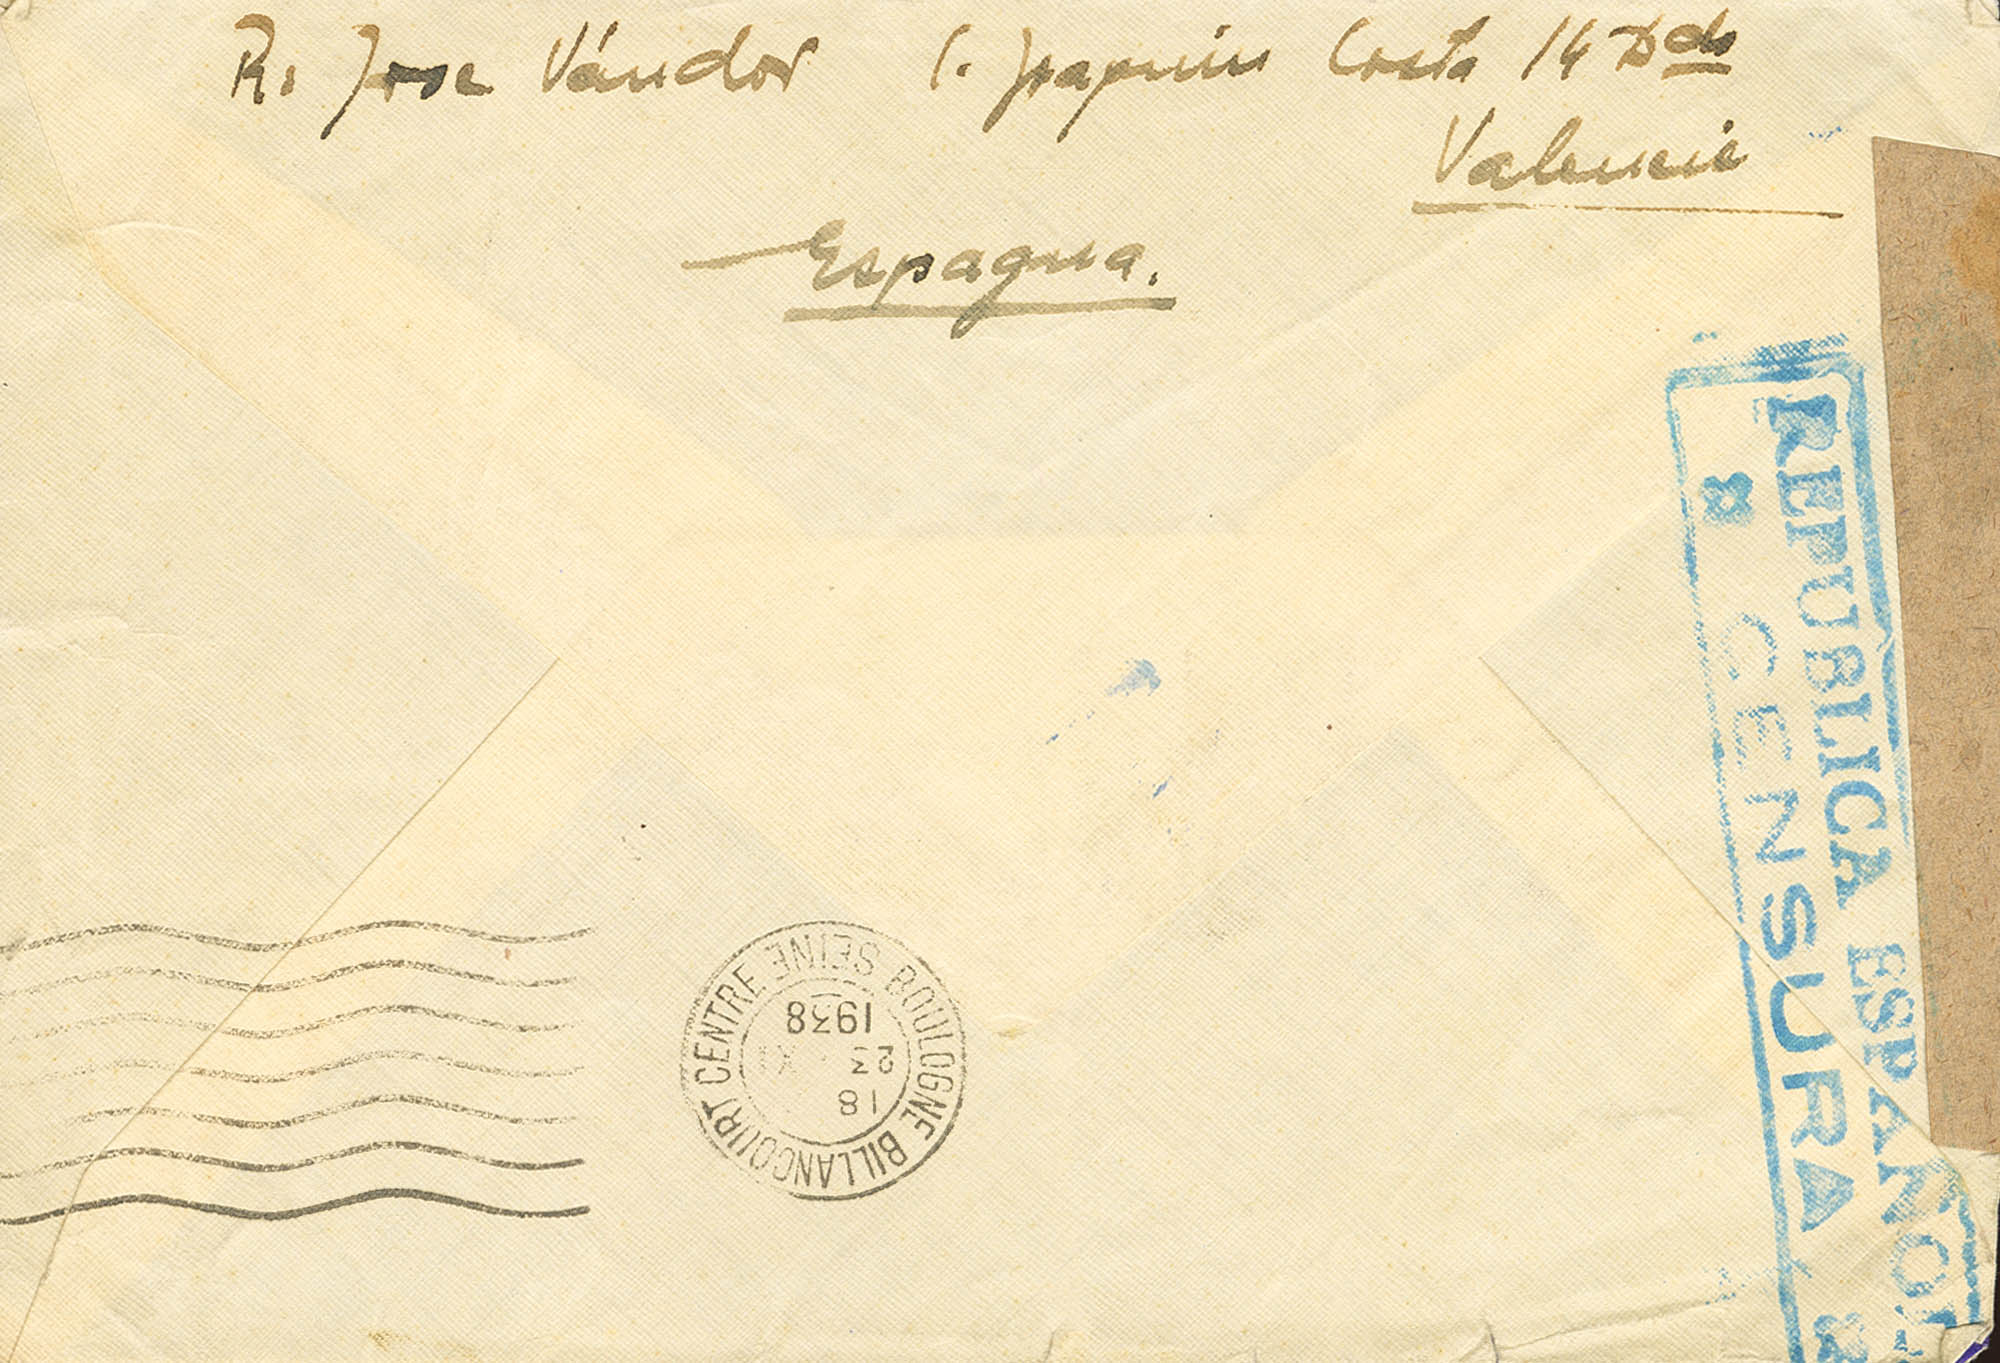 R. Jose Vándor C. Joaquin Costa 14 Dch
Valencia
Espagna.
REPUBLICA ESPAÑOL
CENSURA
BOULOGNE BILLANCOURT CENTRE SEINE
18
23 XI
1938